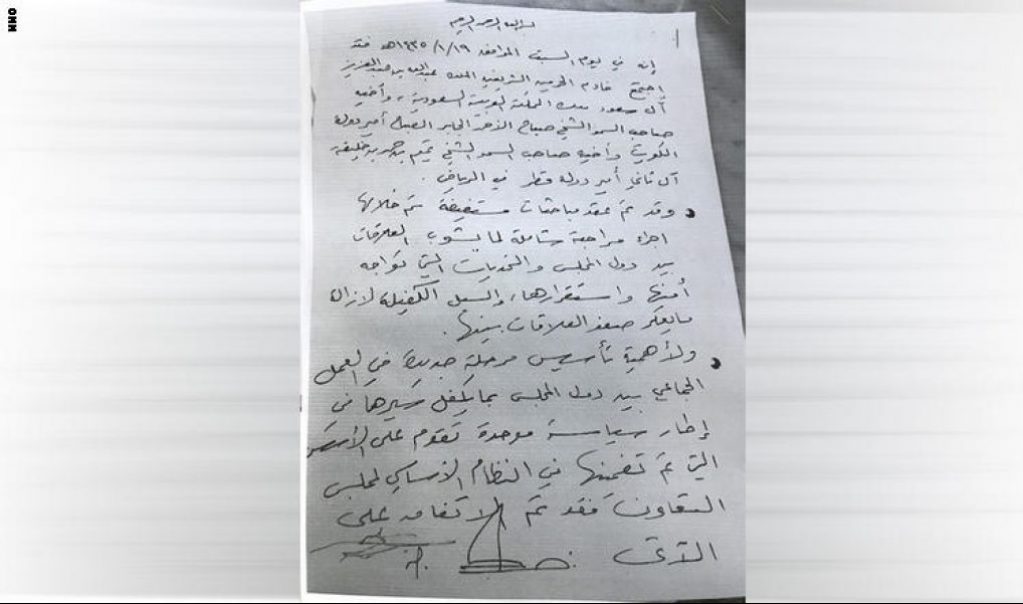 بسم الله الرحمن الرحيم
إنه في يوم السبت الموافق ١٤٣٥/١/١٩هـ فقد
اجتمع خادم الحرمين الشريفين الملك عبدالله بن عبدالعزيز
آل سعود ملك المملكة العربية السعودية، وأخيه
صاحب السمو الشيخ صباح الأحمد الجابر الصباح أمير دولة
الكويت وأخيه صاحب السمو الشيخ تميم بن حمد بن خليفة
آل ثاني أمير دولة قطر في الرياض.
وقد تم عقد مباحثات مستفيضة تم خلالها
اجراء مراجعة شاملة لما يشوب العلاقات
بين دول المجلس والتحديات التي تواجه
أمنها واستقرارها، والسبل الكفيلة لازالة
ما يعكر صفو العلاقات بينها.
ولأهمية تأسيس مرحلة جديدة في العمل
الجماعي بين دول المجلس بما يكفل سيرها في
إطار سياسة موحدة تقوم على الأسس
التي تم تضمينها في النظام الأساسي لمجلس
التعاون فقد تم الاتفاق على
الآتي
CNN